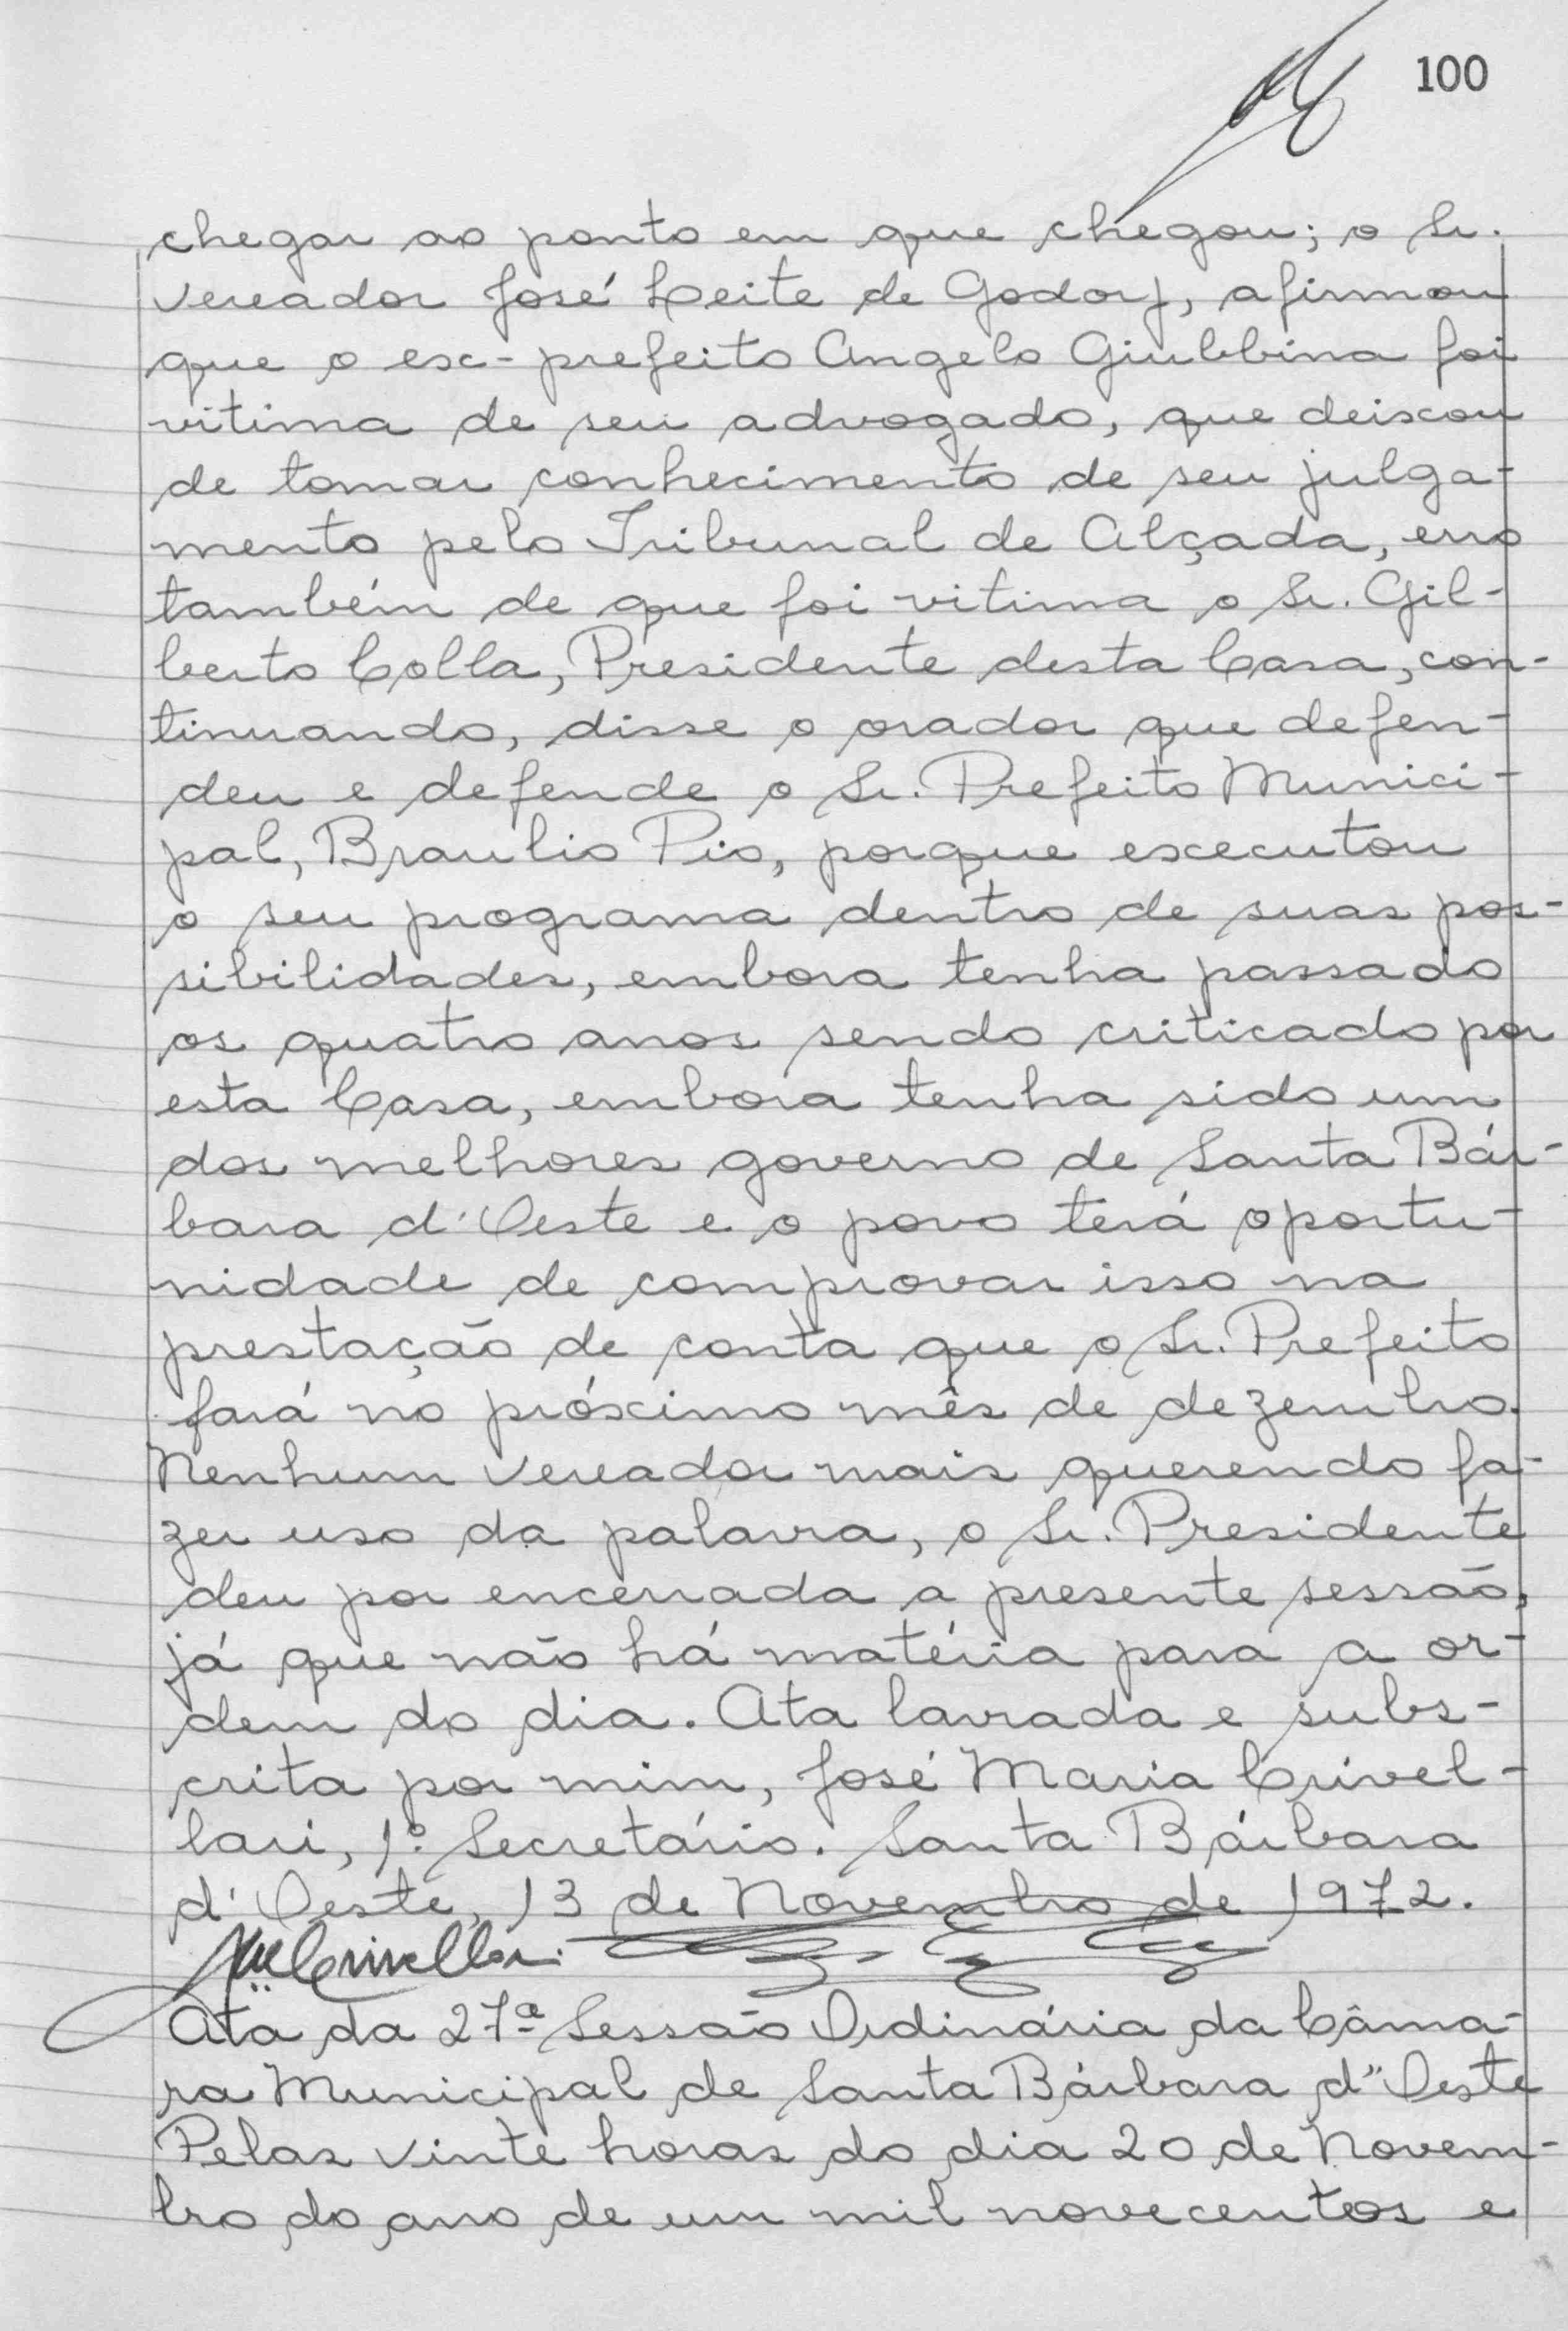 100
chegar ao ponto em que chegou; o Sr.
Vereador José Leite de Godoy, afirmou
que o ex-prefeito Angelo Giubbina foi
vitima de seu advogado, que deixou
de tomar conhecimento de seu julga-
mento pelo Tribunal de Alçada, erro
também de que foi vitima o Sr. Gil-
berto Colla, Presidente desta Casa, con-
tinuando, disse o orador que defen-
deu e defende o Sr. Prefeito Munici-
pal, Braulio Pio, porque executou
o seu programa dentro de suas pos-
sibilidades, embora tenha passado
os quatro anos sendo criticado por
esta Casa, embora tenha sido um
dos melhores governo de Santa Bár-
bara d'Oeste e o povo terá oportu-
nidade de comprovar isso na
prestação de conta que o Sr. Prefeito
fará no próximo mês de dezembro.
Nenhum Vereador mais querendo fa-
zer uso da palavra, o Sr. Presidente
deu por encerrada a presente sessão,
já que não há matéria para a or-
dem do dia. Ata lavrada e subs-
crita por mim, José Maria Crivel-
lari, 1º Secretário. Santa Bárbara
d'Oeste, 13 de Novembro de 1972.
Ata da 27ª Sessão Ordinária da Câma-
ra Municipal de Santa Bárbara d"Oeste
Pelas vinte horas do dia 20 de Novem-
bro do ano de um mil novecentos e